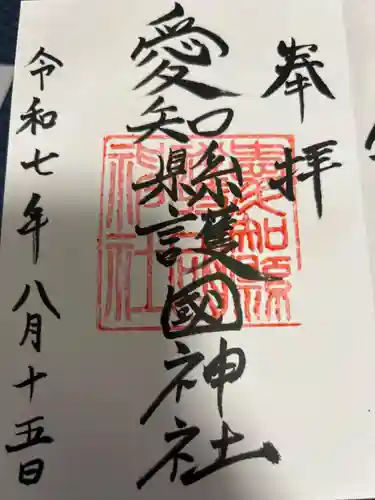 奉拝
愛知縣護國神社
令和七年八月十五日
愛知縣護國神社